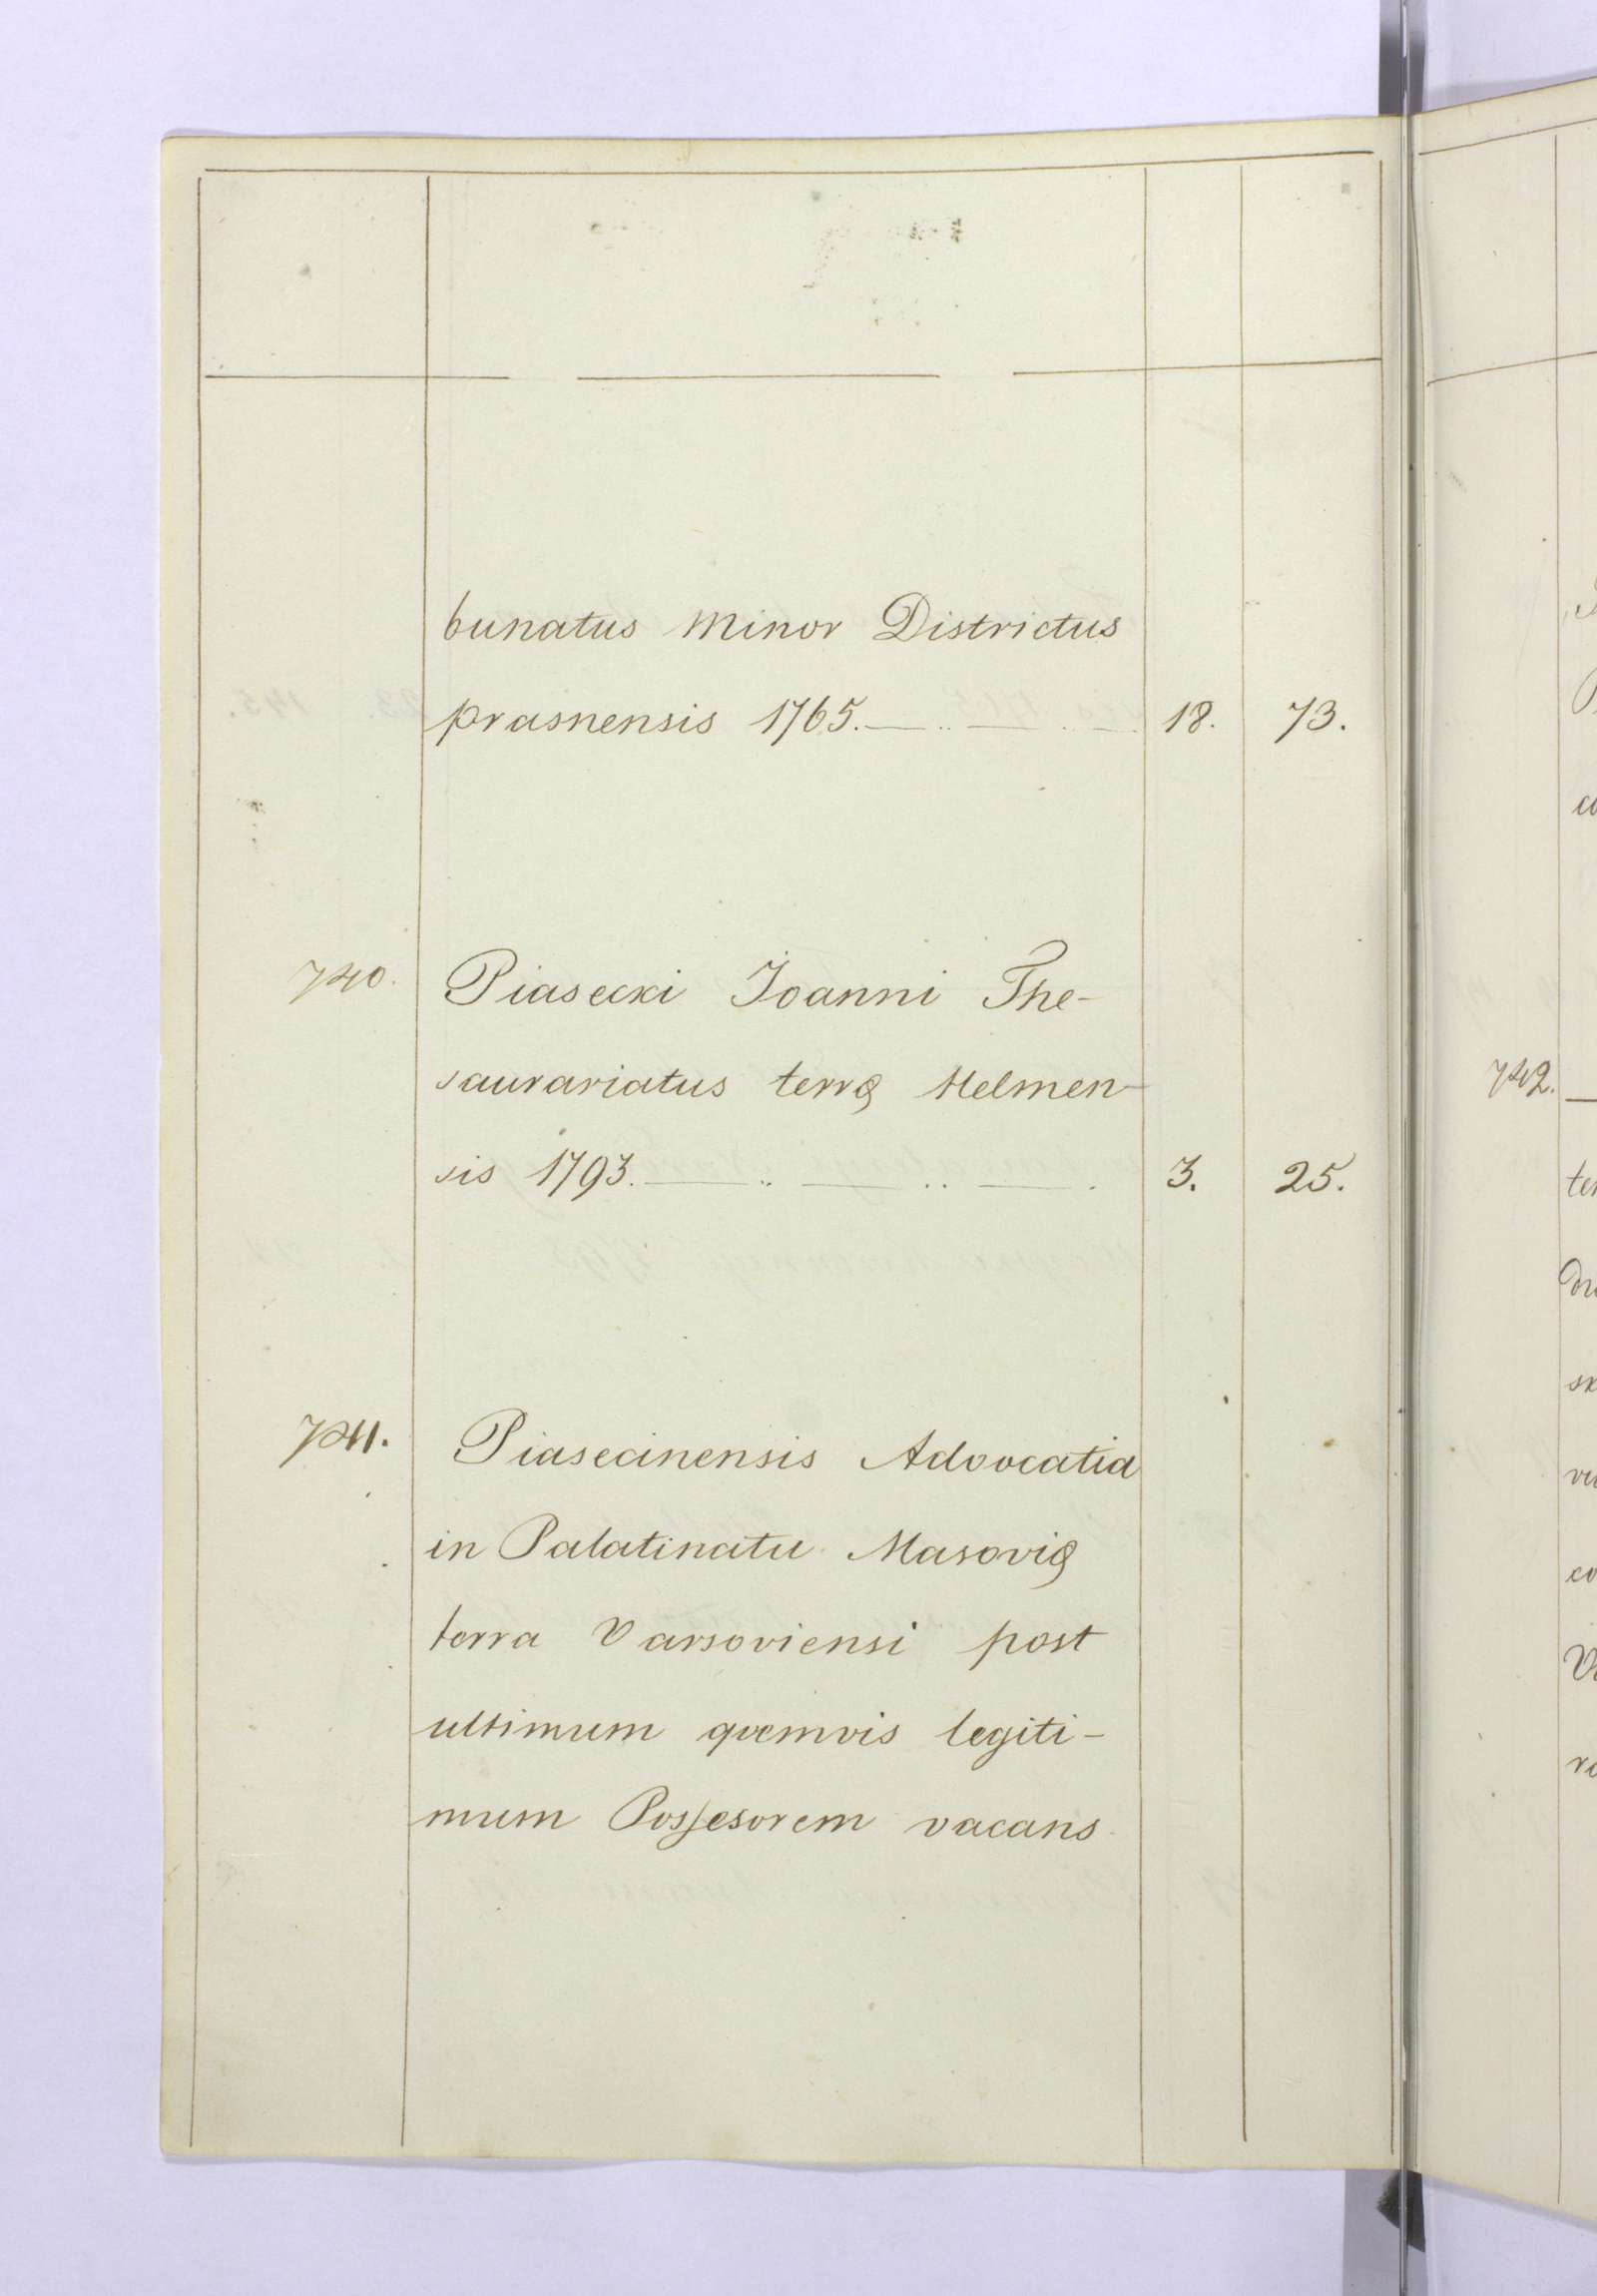 bunatus Minor Districtus
prasnensis 1765. — .. — . — . 18. 73.
740. Piasecki Joanni The-
saurariatus terrę Helmen-
sis 1793. — .. — .. — . 3. 25.
741. Piasecinensis Advocatia
in Palatinatu Masovię
terra Varsoviensi post
ultimum qvemvis legiti-
mum Possesorem vacans
742.